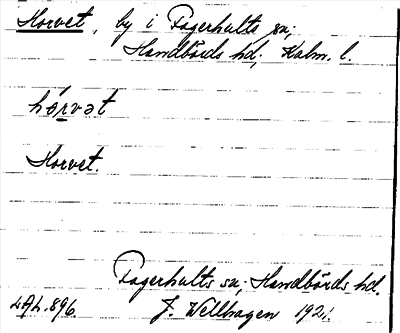 Horvet, by i Fagerhults sn;
Handbörds hd; Kalm. l.
hórvət
Horvet.
Fagerhults sn; Handbörds hd.
LAL. 896. J. Wellhagen 1921.